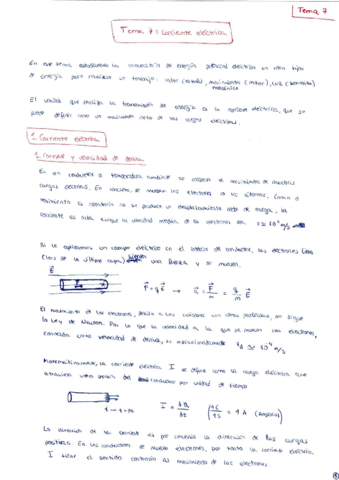 Tema 7
Tema 7: Corriente eléctrica
En este tema estudiaremos la conversión de energía potencial eléctrica en otro tipo
de energía para realizar un trabajo: calor (estufa), movimiento (motor), luz (bombilla)
mecánico
El vehículo que realiza la transmisión de energía es la corriente eléctrica, que se
puede definir como un movimiento neto de las cargas eléctricas.
1. Corriente eléctrica
1. Corriente y velocidad de deriva
En un conductor a temperatura ambiente se observa el movimiento de nuestras
cargas eléctricas. En concreto, se mueven los electrones de los átomos. Como el
movimiento es aleatorio no se produce un desplazamiento neto de carga, la
corriente es nula, aunque la velocidad media de los electrones son v ≈ 10⁶ m/s
Si le aplicamos un campo eléctrico en el interior de conductor, los electrones libres
(los de la última capa) sienten una fuerza y se mueven.
E
F = qE → a = F/m = q/m E
El movimiento de los electrones, debido a las colisiones con otras partículas, no sigue
la Ley de Newton. Por lo que la velocidad a la que se mueven los electrones,
conocida como velocidad de deriva, es aproximadamente v_d ≈ 10⁻⁴ m/s
Matemáticamente, la corriente eléctrica I se define como la carga eléctrica que
atraviesa una sección del conductor por unidad de tiempo
I = ΔQ/Δt (1C/1s = 1 A (Amperio))
La dirección de la corriente es por convenio la dirección de las cargas
positivas. En los conductores se mueven electrones, por tanto la corriente eléctrica
I tiene el sentido contrario al movimiento de los electrones.